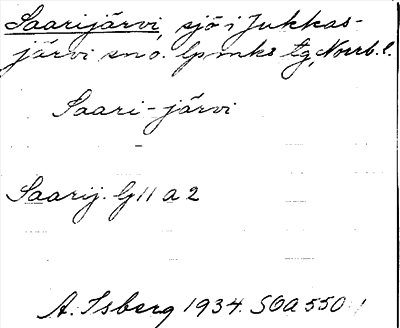 Saarijärvi, sjö i Jukkas-
järvi sn o. lpmks tg, Norrb. l.
Saari-järvi
Saarij. Gj 11 a 2
A. Isberg 1934. SOA 550